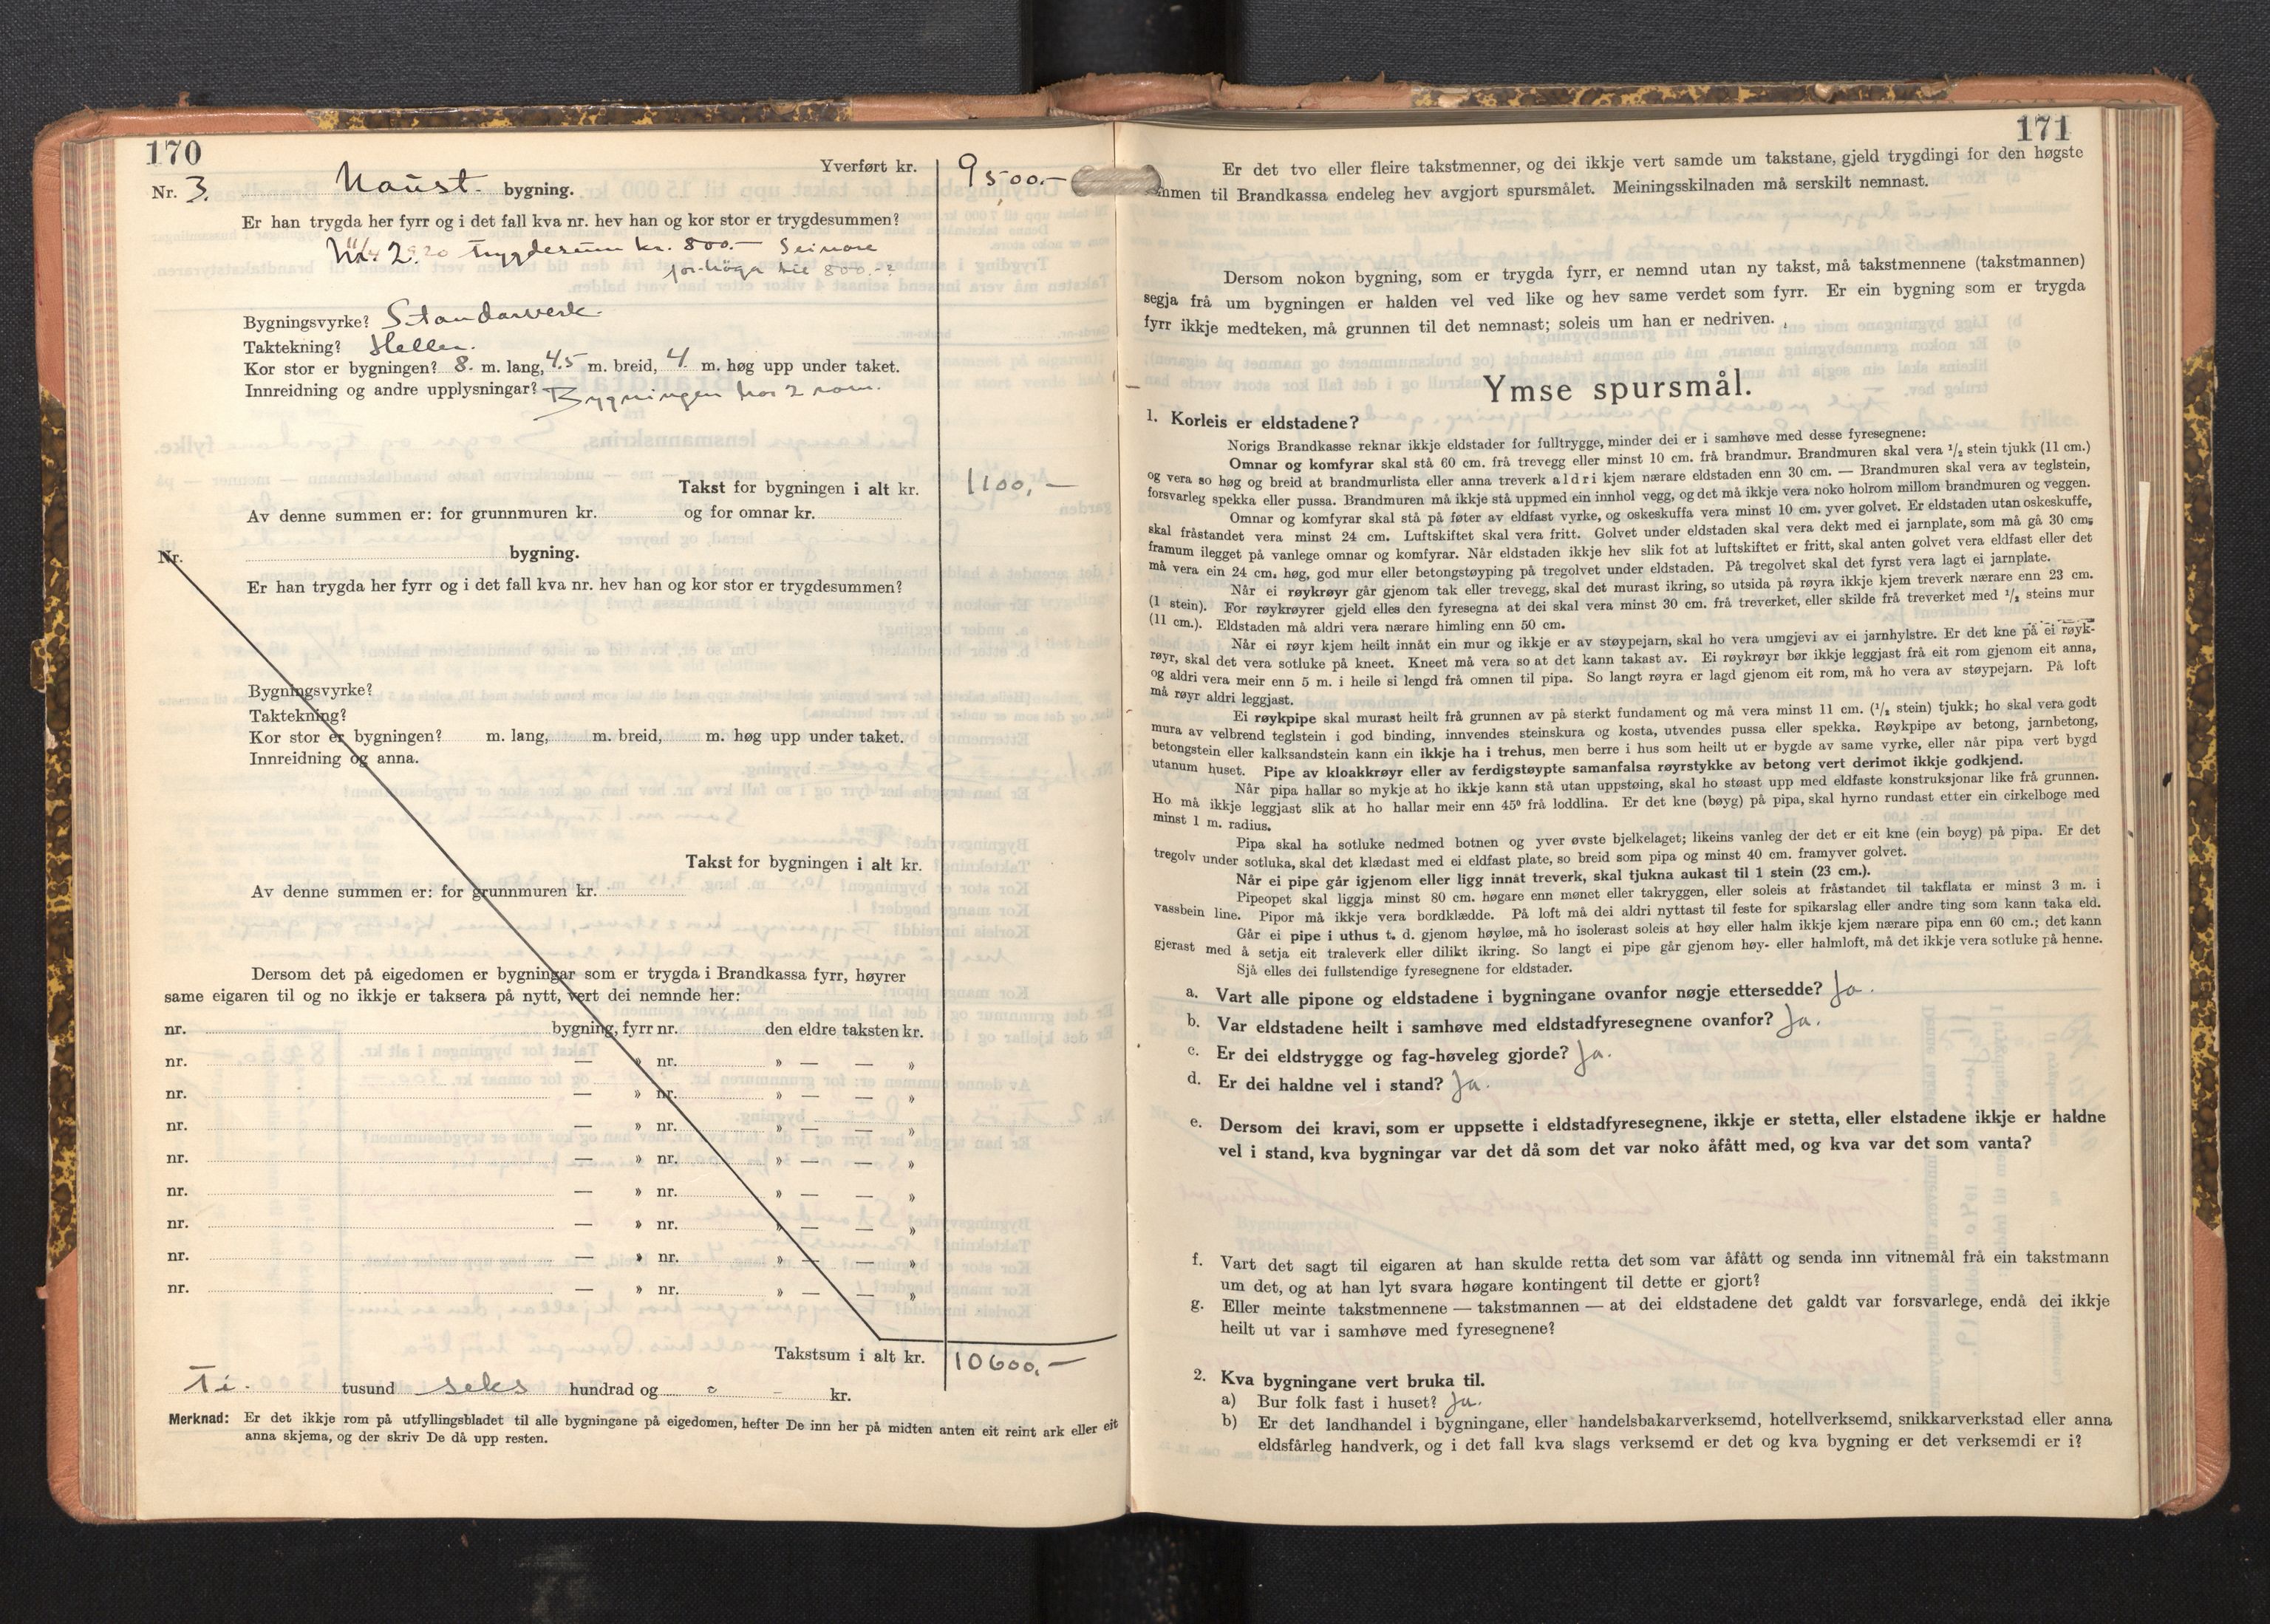 170
Yverført kr. 9500.-
Nr. 3. Naust. bygning.
Er han trygda her fyrr og i det fall kva nr. hev han og kor stor er trygdesummen?
trygdesum kr. 800.- Seinare
800.-
Bygningsvyrke? Standarverk.
Taktekning? Heller.
Kor stor er bygningen? 8. m. lang, 4.5 m. breid, 4 m. høg upp under taket.
Innreidning og andre upplysningar? Bygningen har 2 rom.
Takst for bygningen i alt kr. 1100,-
Av denne summen er: for grunnmuren kr. og for omnar kr.
Nr. bygning.
Er han trygda her fyrr og i det fall kva nr. hev han og kor stor er trygdesummen?
Bygningsvyrke?
Taktekning?
Kor stor er bygningen? m. lang, m. breid, m. høg upp under taket.
Innreidning og anna.
Takst for bygningen i alt kr.
Av denne summen er: for grunnmuren kr.
Dersom det på eigedomen er bygningar som er trygda i Brandkassa fyrr, høyrer
same eigaren til og no ikkje er taksera på nytt, vert dei nemnde her:
nr. bygning, fyrr nr. den eldre taksten kr.
nr. — » nr. » — — »
nr. — » nr. » — — »
nr. — » nr. » — — »
nr. — » nr. » — — »
nr. — » nr. » — — »
nr. — » nr. » — — »
nr. — » nr. » — — »
nr. — » nr. » — — »
Takstsum i alt kr. 10600,-
Ti. tusund seks hundrad og o - kr.
Merknad: Er det ikkje rom på utfyllingsbladet til alle bygningane på eigedomen, hefter De inn her på midten anten eit reint ark eller eit
anna skjema, og der skriv De då upp resten.
171
Er det tvo eller fleire takstmenner, og dei ikkje vert samde um takstane, gjeld trygdingi for den høgste
mmen til Brandkassa endeleg hev avgjort spursmålet. Meiningsskilnaden må serskilt nemnast.
Dersom nokon bygning, som er trygda fyrr, er nemnd utan ny takst, må takstmennene (takstmannen)
segja frå um bygningen er halden vel ved like og hev same verdet som fyrr. Er ein bygning som er trygda
fyrr ikkje medteken, må grunnen til det nemnast; soleis um han er nedriven.
Ymse spursmål.
1. Korleis er eldstadene?
Norigs Brandkasse reknar ikkje eldstader for fulltrygge, minder dei er i samhøve med desse fyresegnene:
Omnar og komfyrar skal stå 60 cm. frå trevegg eller minst 10 cm. frå brandmur. Brandmuren skal vera ½ stein tjukk (11 cm.)
og vera so høg og breid at brandmurlista eller anna treverk aldri kjem nærare eldstaden enn 30 cm. — Brandmuren skal vera av teglstein,
forsvarleg spekka eller pussa. Brandmuren må ikkje stå uppmed ein innhol vegg, og det må ikkje vera noko holrom millom brandmuren og veggen.
Omnar og komfyrar skal stå på føter av eldfast vyrke, og oskeskuffa vera minst 10 cm. yver golvet. Er eldstaden utan oskeskuffe,
skal fråstandet vera minst 24 cm. Luftskiftet skal vera fritt. Golvet under eldstaden skal vera dekt med ei jarnplate, som må gå 30 cm;
framum ilegget på vanlege omnar og komfyrar. Når eldstaden ikkje hev slik fot at luftskiftet er fritt, skal anten golvet vera eldfast eller det
må vera ein 24 cm. høg, god mur eller betongstøyping på tregolvet under eldstaden. På tregolvet skal det fyrst vera lagt ei jarnplate.
Når ei røykrøyr går gjenom tak eller trevegg, skal det murast ikring, so utsida på røyra ikkje kjem treverk nærare enn 23 cm.
(1 stein). For røykrøyrer gjeld elles den fyresegna at dei skal vera minst 30 cm. frå treverket, eller skilde frå treverket med ½ steins mur
(11 cm.). Eldstaden må aldri vera nærare himling enn 50 cm.
Når ei røyr kjem heilt innåt ein mur og ikkje er av støypejarn, skal ho vera umgjevi av ei jarnhylstre. Er det kne på ei røyk-
røyr, skal det vera sotluke på kneet. Kneet må vera so at det kann takast av. Ei røykrøyr bør ikkje leggjast frå eit rom gjenom eit anna,
og aldri vera meir enn 5 m. i heile si lengd frå omnen til pipa. So langt røyra er lagd gjenom eit rom, må ho vera av støypejarn. På loft
må røyr aldri leggjast.
Ei røykpipe skal murast heilt frå grunnen av på sterkt fundament og må vera minst 11 cm. (½ stein) tjukk; ho skal vera godt
mura av velbrend teglstein i god binding, innvendes steinskura og kosta, utvendes pussa eller spekka. Røykpipe av betong, jarnbetong,
betongstein eller kalksandstein kann ein ikkje ha i trehus, men berre i hus som heilt ut er bygde av same vyrke, eller når pipa vert bygd
utanum huset. Pipe av kloakkrøyr eller av ferdigstøypte samanfalsa røyrstykke av betong vert derimot ikkje godkjend.
Når pipa hallar so mykje at ho ikkje kann stå utan uppstøing, skal ho støast upp med eldfaste konstruksjonar like frå grunnen.
Ho må ikkje leggjast slik at ho hallar meir enn 45° frå loddlina. Er det kne (bøyg) på pipa, skal hyrno rundast etter ein cirkelboge med
minst 1 m. radius.
Pipa skal ha sotluke nedmed botnen og yver øvste bjelkelaget; likeins vanleg der det er eit kne (ein bøyg) på pipa. Er det
tregolv under sotluka, skal det klædast med ei eldfast plate, so breid som pipa og minst 40 cm. framyver golvet.
Når ei pipe går igjenom eller ligg innåt treverk, skal tjukna aukast til 1 stein (23 cm.).
Pipeopet skal liggja minst 80 cm. høgare enn mønet eller takryggen, eller soleis at fråstandet til takflata er minst 3 m. i
vassbein line. Pipor må ikkje vera bordklædde. På loft må dei aldri nyttast til feste for spikarslag eller andre ting som kann taka eld.
Går ei pipe i uthus t. d. gjenom høyløe, må ho isolerast soleis at høy eller halm ikkje kjem nærare pipa enn 60 cm.; det kann
gjerast med å setja eit traleverk eller dilikt ikring. So langt ei pipe går gjenom høy- eller halmloft, må det ikkje vera sotluke på henne.
Sjå elles dei fullstendige fyresegnene for eldstader.
a. Vart alle pipone og eldstadene i bygningane ovanfor nøgje ettersedde? Ja.
b. Var eldstadene heilt i samhøve med eldstadfyresegnene ovanfor? Ja.
c. Er dei eldstrygge og fag-høveleg gjorde? Ja.
d. Er dei haldne vel i stand? Ja.
e. Dersom dei kravi, som er uppsette i eldstadfyresegnene, ikkje er stetta, eller elstadene ikkje er haldne
vel i stand, kva bygningar var det då som det var noko åfått med, og kva var det som vanta?
f. Vart det sagt til eigaren at han skulde retta det som var åfått og senda inn vitnemål frå ein takstmann
um det, og at han lyt svara høgare kontingent til dette er gjort?
g. Eller meinte takstmennene — takstmannen — at dei eldstadene det galdt var forsvarlege, endå dei ikkje
heilt ut var i samhøve med fyresegnene?
2. Kva bygningane vert bruka til.
a) Bur folk fast i huset? Ja.
b) Er det landhandel i bygningane, eller handelsbakarverksemd, hotellverksemd, snikkarverkstad eller anna
eldsfårleg handverk, og i det fall kva slags verksemd er det og kva bygning er det verksemdi er i?